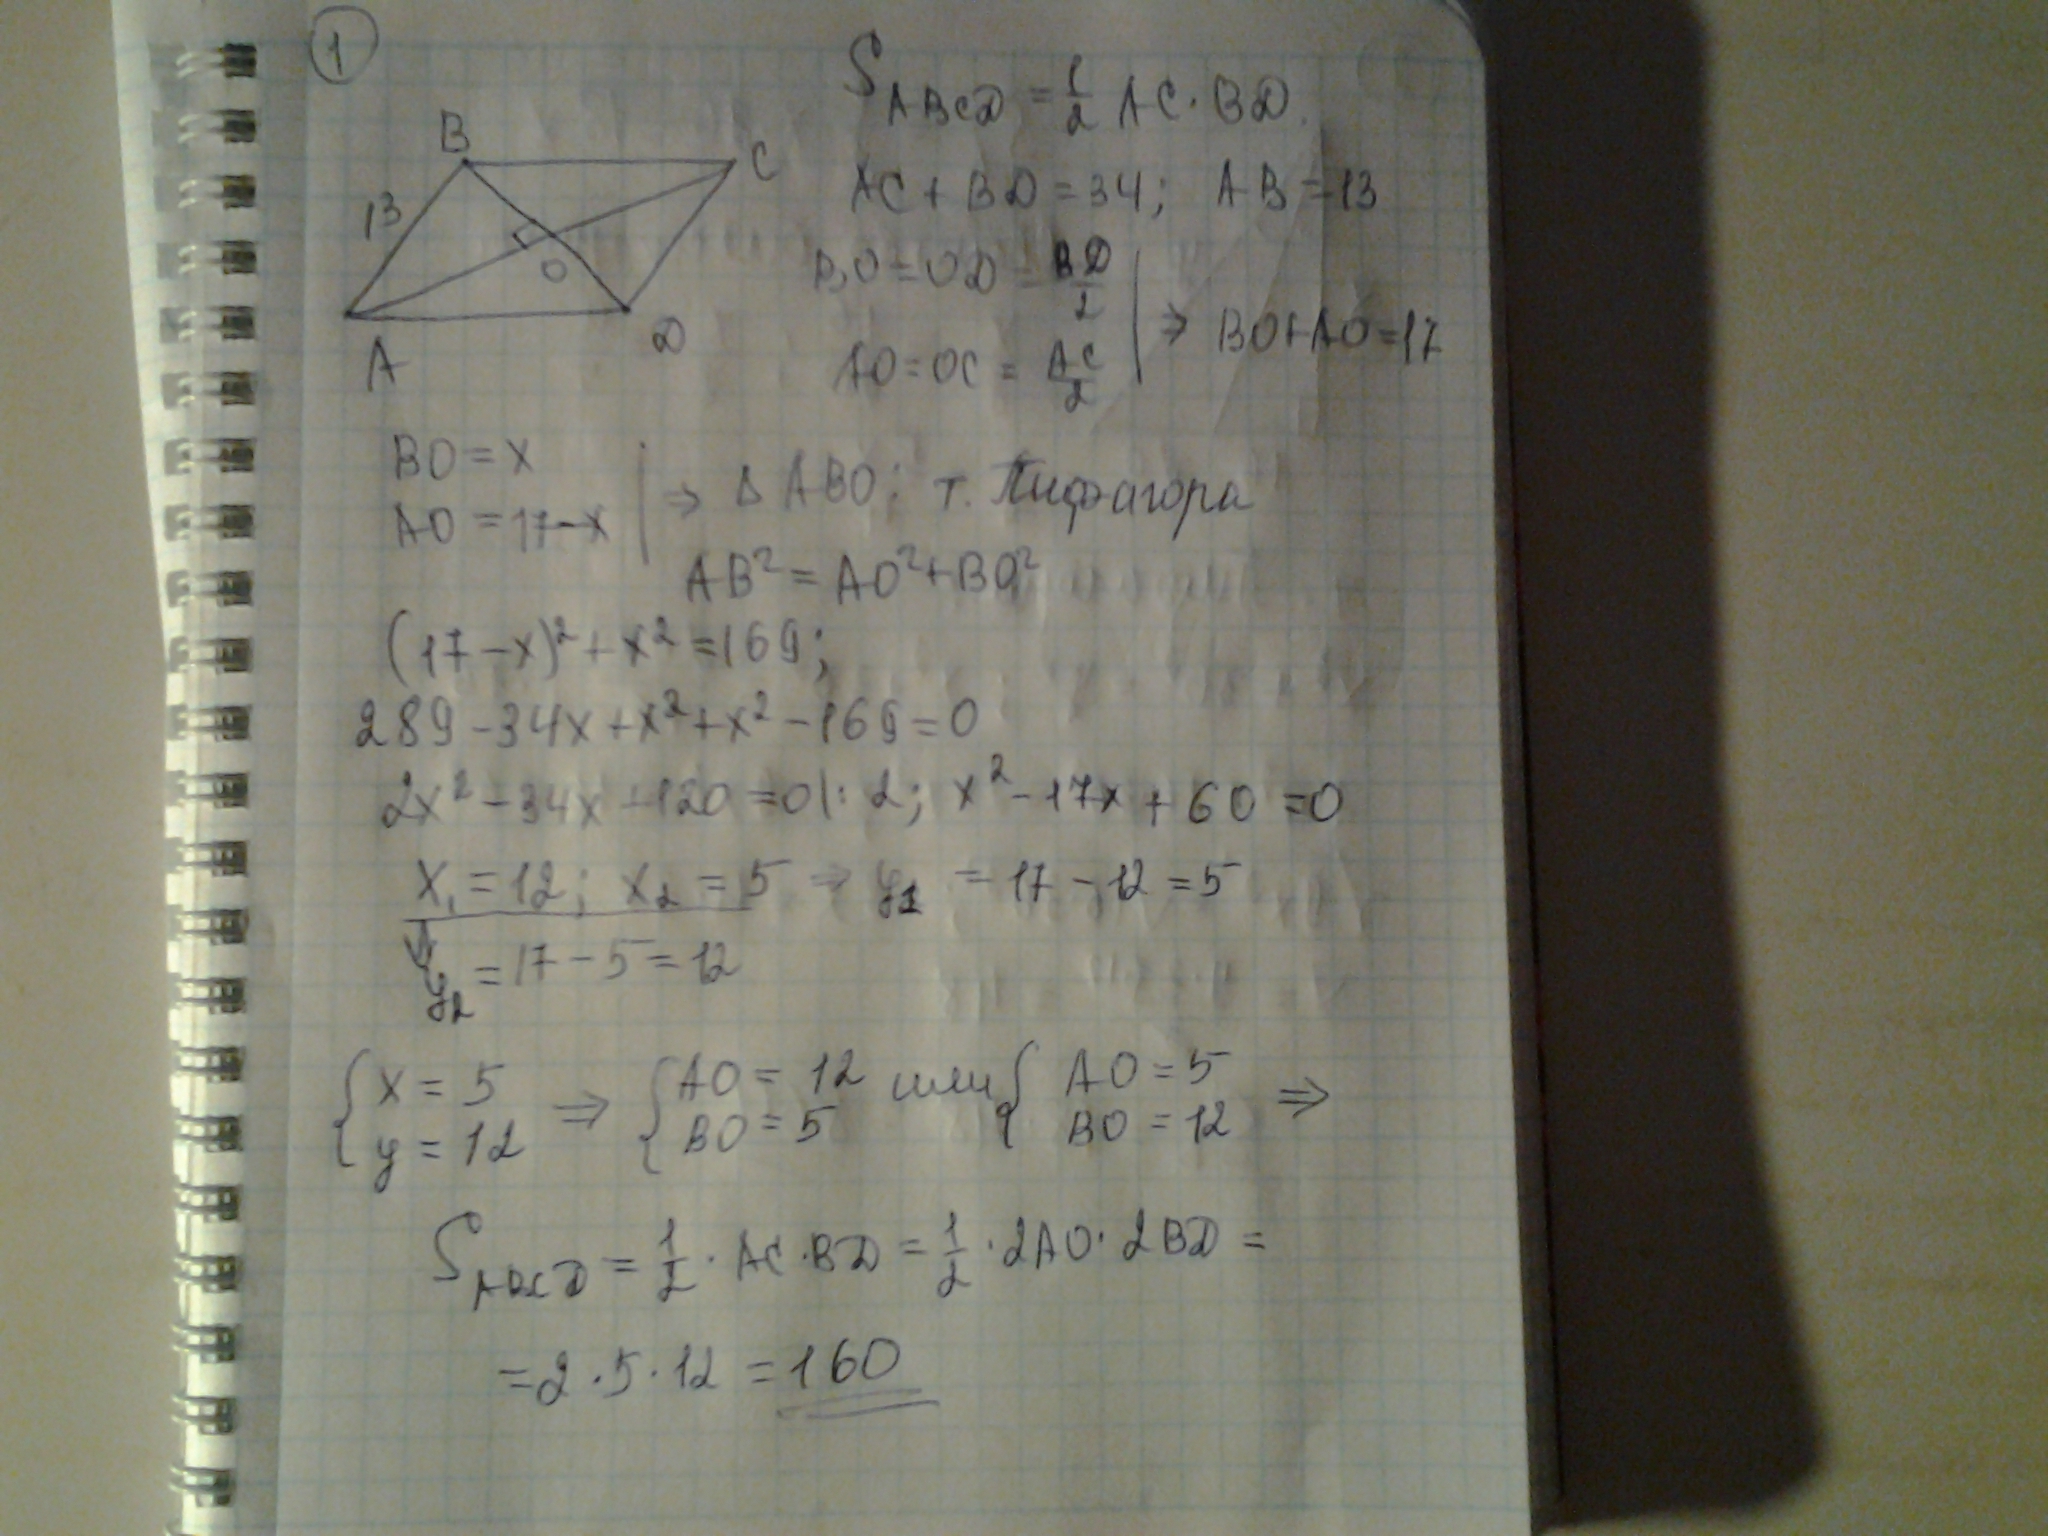 1
S ABCD = 1/2 AC · BD.
B
C
13
O
A
D
AC + BD = 34; AB = 13
BO = OD = BD/2
AO = OC = AC/2
⇒ BO + AO = 17
BO = x
AO = 17 - x
⇒ Δ ABO: т. Пифагора
AB² = AO² + BO²
(17 - x)² + x² = 169;
289 - 34x + x² + x² - 169 = 0
2x² - 34x + 120 = 0 |: 2; x² - 17x + 60 = 0
x₁ = 12; x₂ = 5 ⇒ y₁ = 17 - 12 = 5
y₂ = 17 - 5 = 12
{ x = 5
y = 12
⇒ { AO = 12
BO = 5
или { AO = 5
BO = 12
⇒
S ABCD = 1/2 · AC · BD = 1/2 · 2AO · 2BD =
= 2 · 5 · 12 = 160